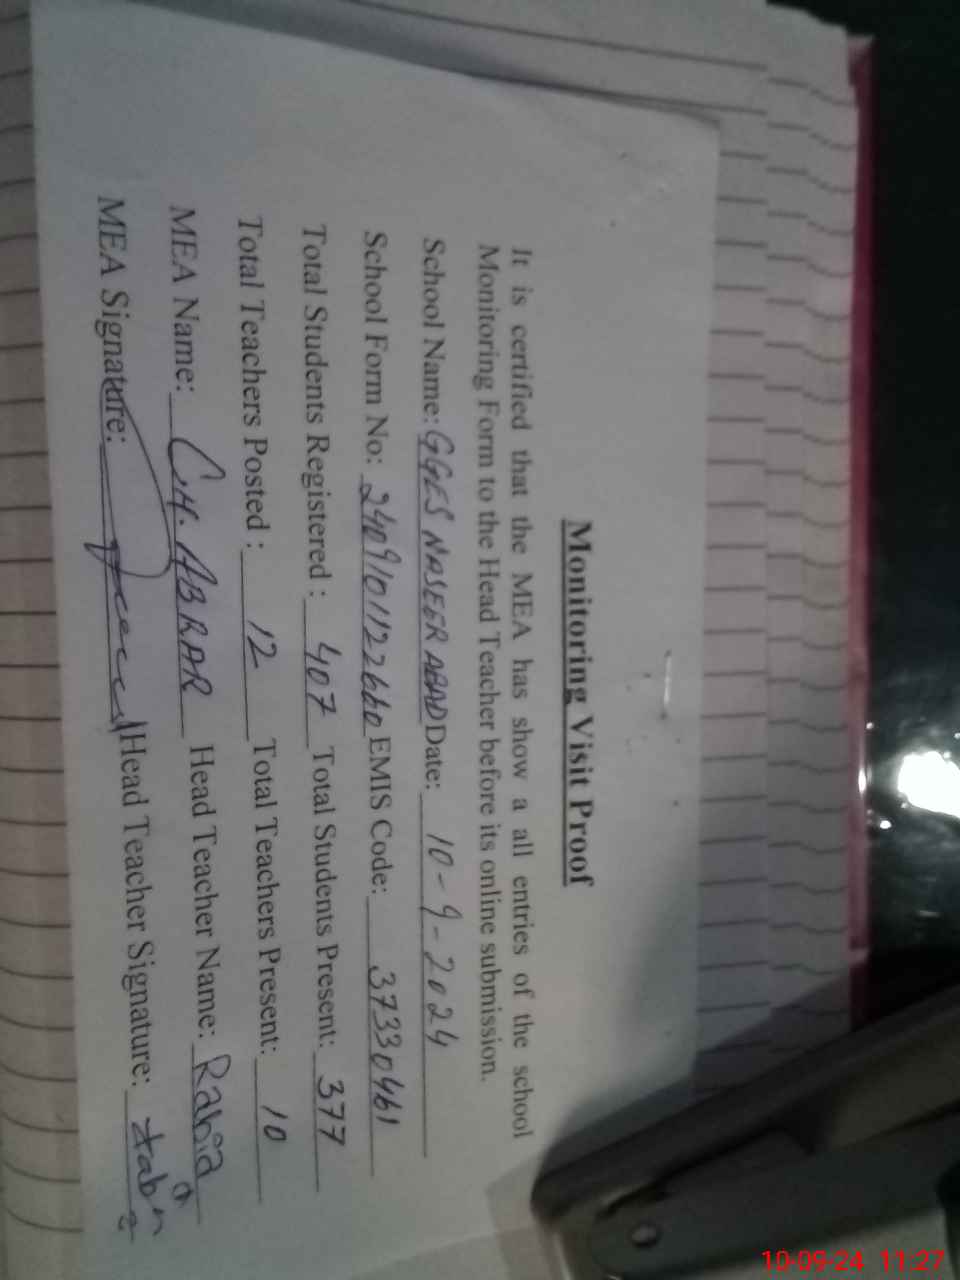 Monitoring Visit Proof
It is certified that the MEA has show a all entries of the school
Monitoring Form to the Head Teacher before its online submission.
School Name: GGES NASEER ABAD Date: 10-9-2024
School Form No: 2409101122660 EMIS Code: 37330461
Total Students Registered : 407 Total Students Present: 377
Total Teachers Posted : 12 Total Teachers Present: 10
MEA Name: CH. ABRAR Head Teacher Name: Rabia
MEA Signature: Head Teacher Signature:
10-09-24 11:27